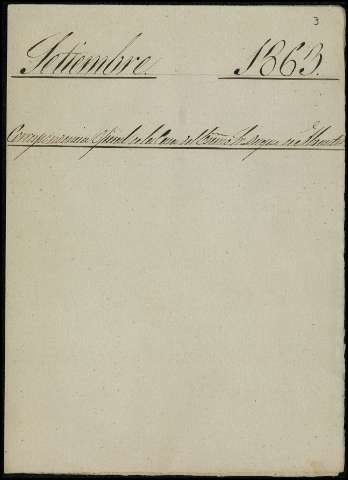 3
Setiembre. 1863.
Correspondencia Oficial de la Casa del Excmo Sr Duque de